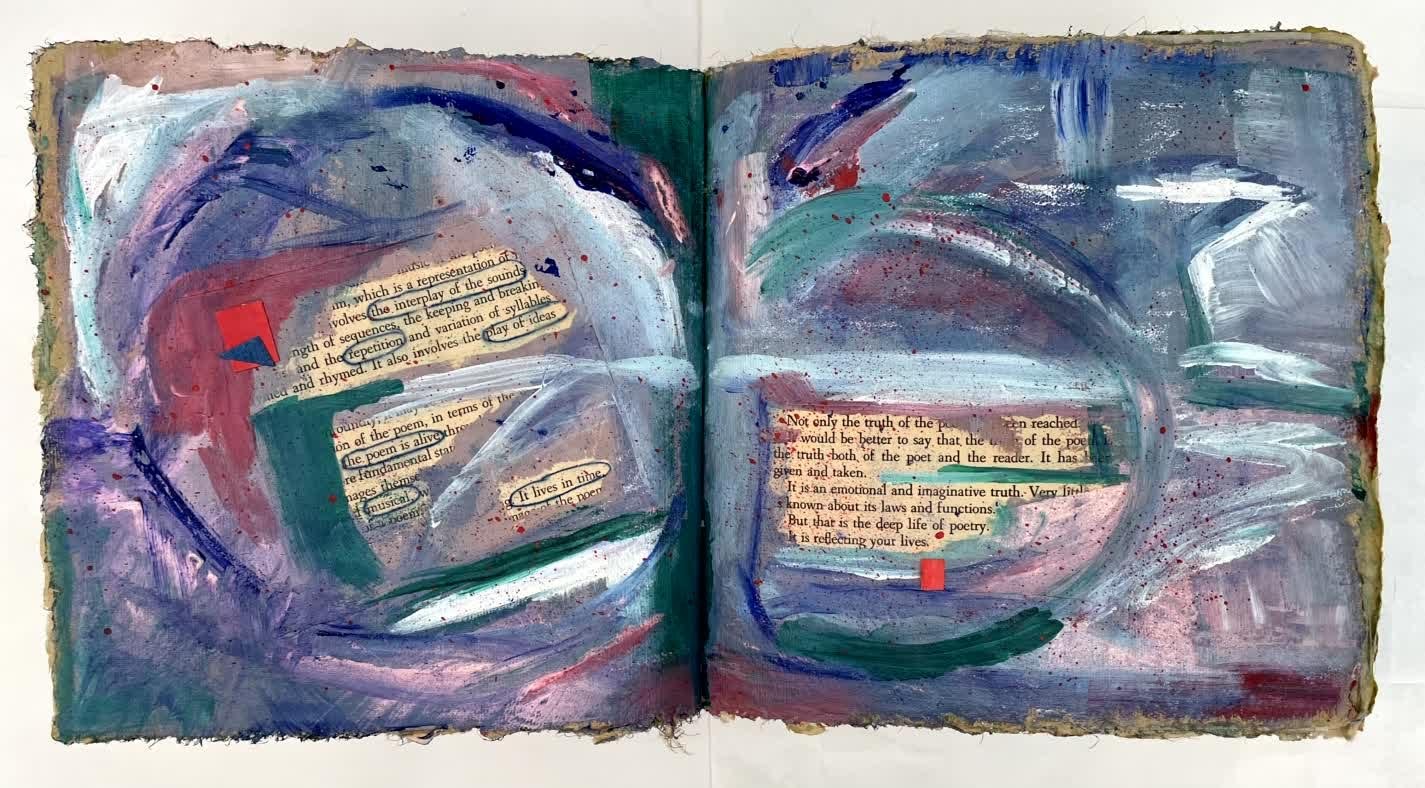 music
um, which is a representation of
volves the interplay of the sounds
ngth of sequences, the keeping and breakin
and the repetition and variation of syllables
and rhymed. It also involves the play of ideas
on of the poem, in terms of the
the poem is alive thro
re fundamental sta
mages themse
musical, w
poem
It lives in time
the poem
Not only the truth of the po en reached.
It would be better to say that the of the poem i
the truth both of the poet and the reader. It has
given and taken.
It is an emotional and imaginative truth. Very littl
known about its laws and functions.
But that is the deep life of poetry.
It is reflecting your lives.